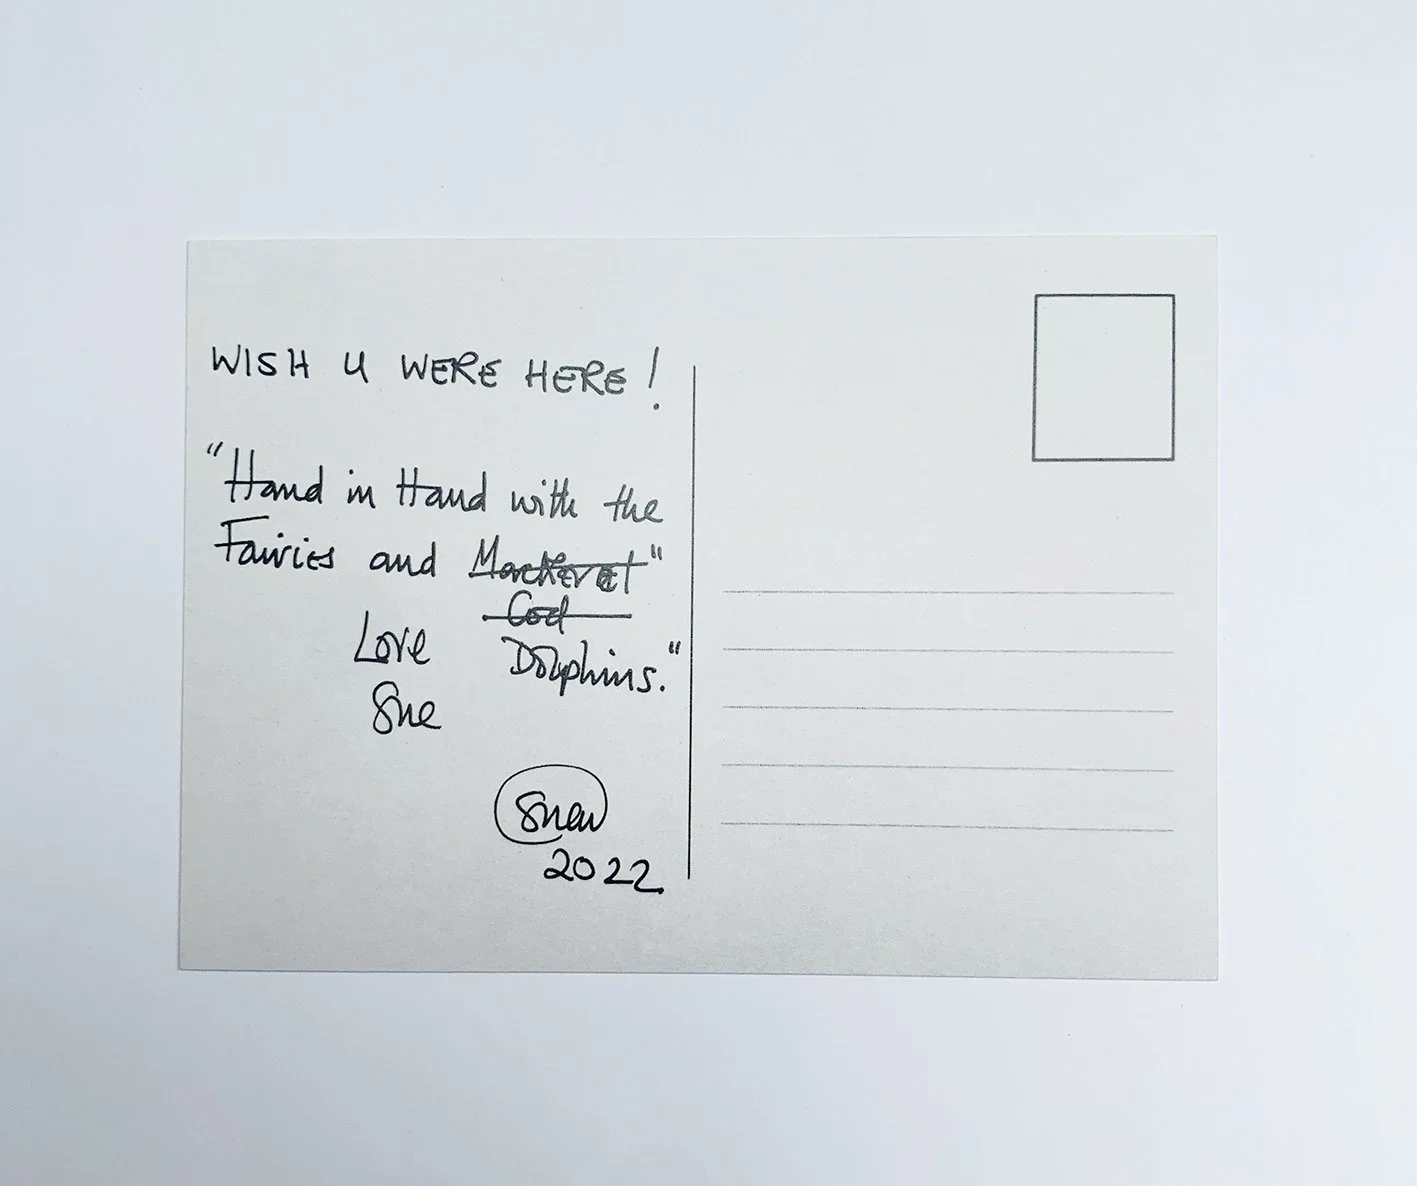 WISH U WERE HERE!
"Hand in Hand with the
Fairies and Mackerel"
Cod
Dolphins."
Love
Sue
2022